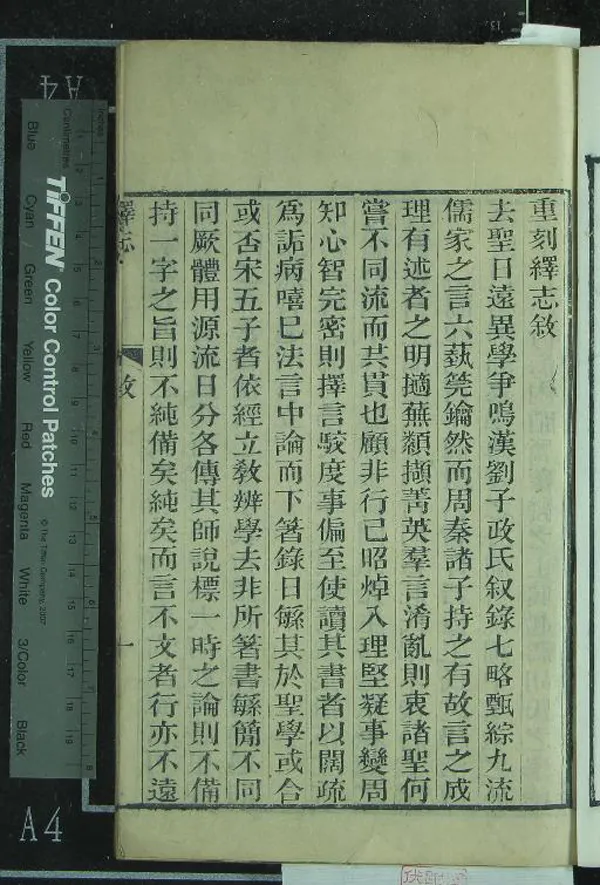 重刻繹志敘
去聖日遠異學爭鳴漢劉子政氏叙錄七略甄綜九流
儒家之言六蓺筦鑰然而周秦諸子持之有故言之成
理有述者之明擿蕪纇擷菁英羣言淆亂則衷諸聖何
嘗不同流而共貫也顧非行己昭焯入理堅凝事變周
知心智完密則擇言駮度事偏至使讀其書者以闊疏
爲詬病嘻已法言中論而下箸錄日緐其於聖學或合
或否宋五子者依經立敎辨學去非所箸書緐簡不同
同厥體用源流日分各傳其師說標一時之論則不備
持一字之旨則不純備矣純矣而言不文者行亦不遠
繹志
敘
一
TIFFEN® Color Control Patches
© The Tiffen Company, 2007
Inches
Centimetres
Blue
Cyan
Green
Yellow
Red
Magenta
White
3/Color
Black
A4
A4